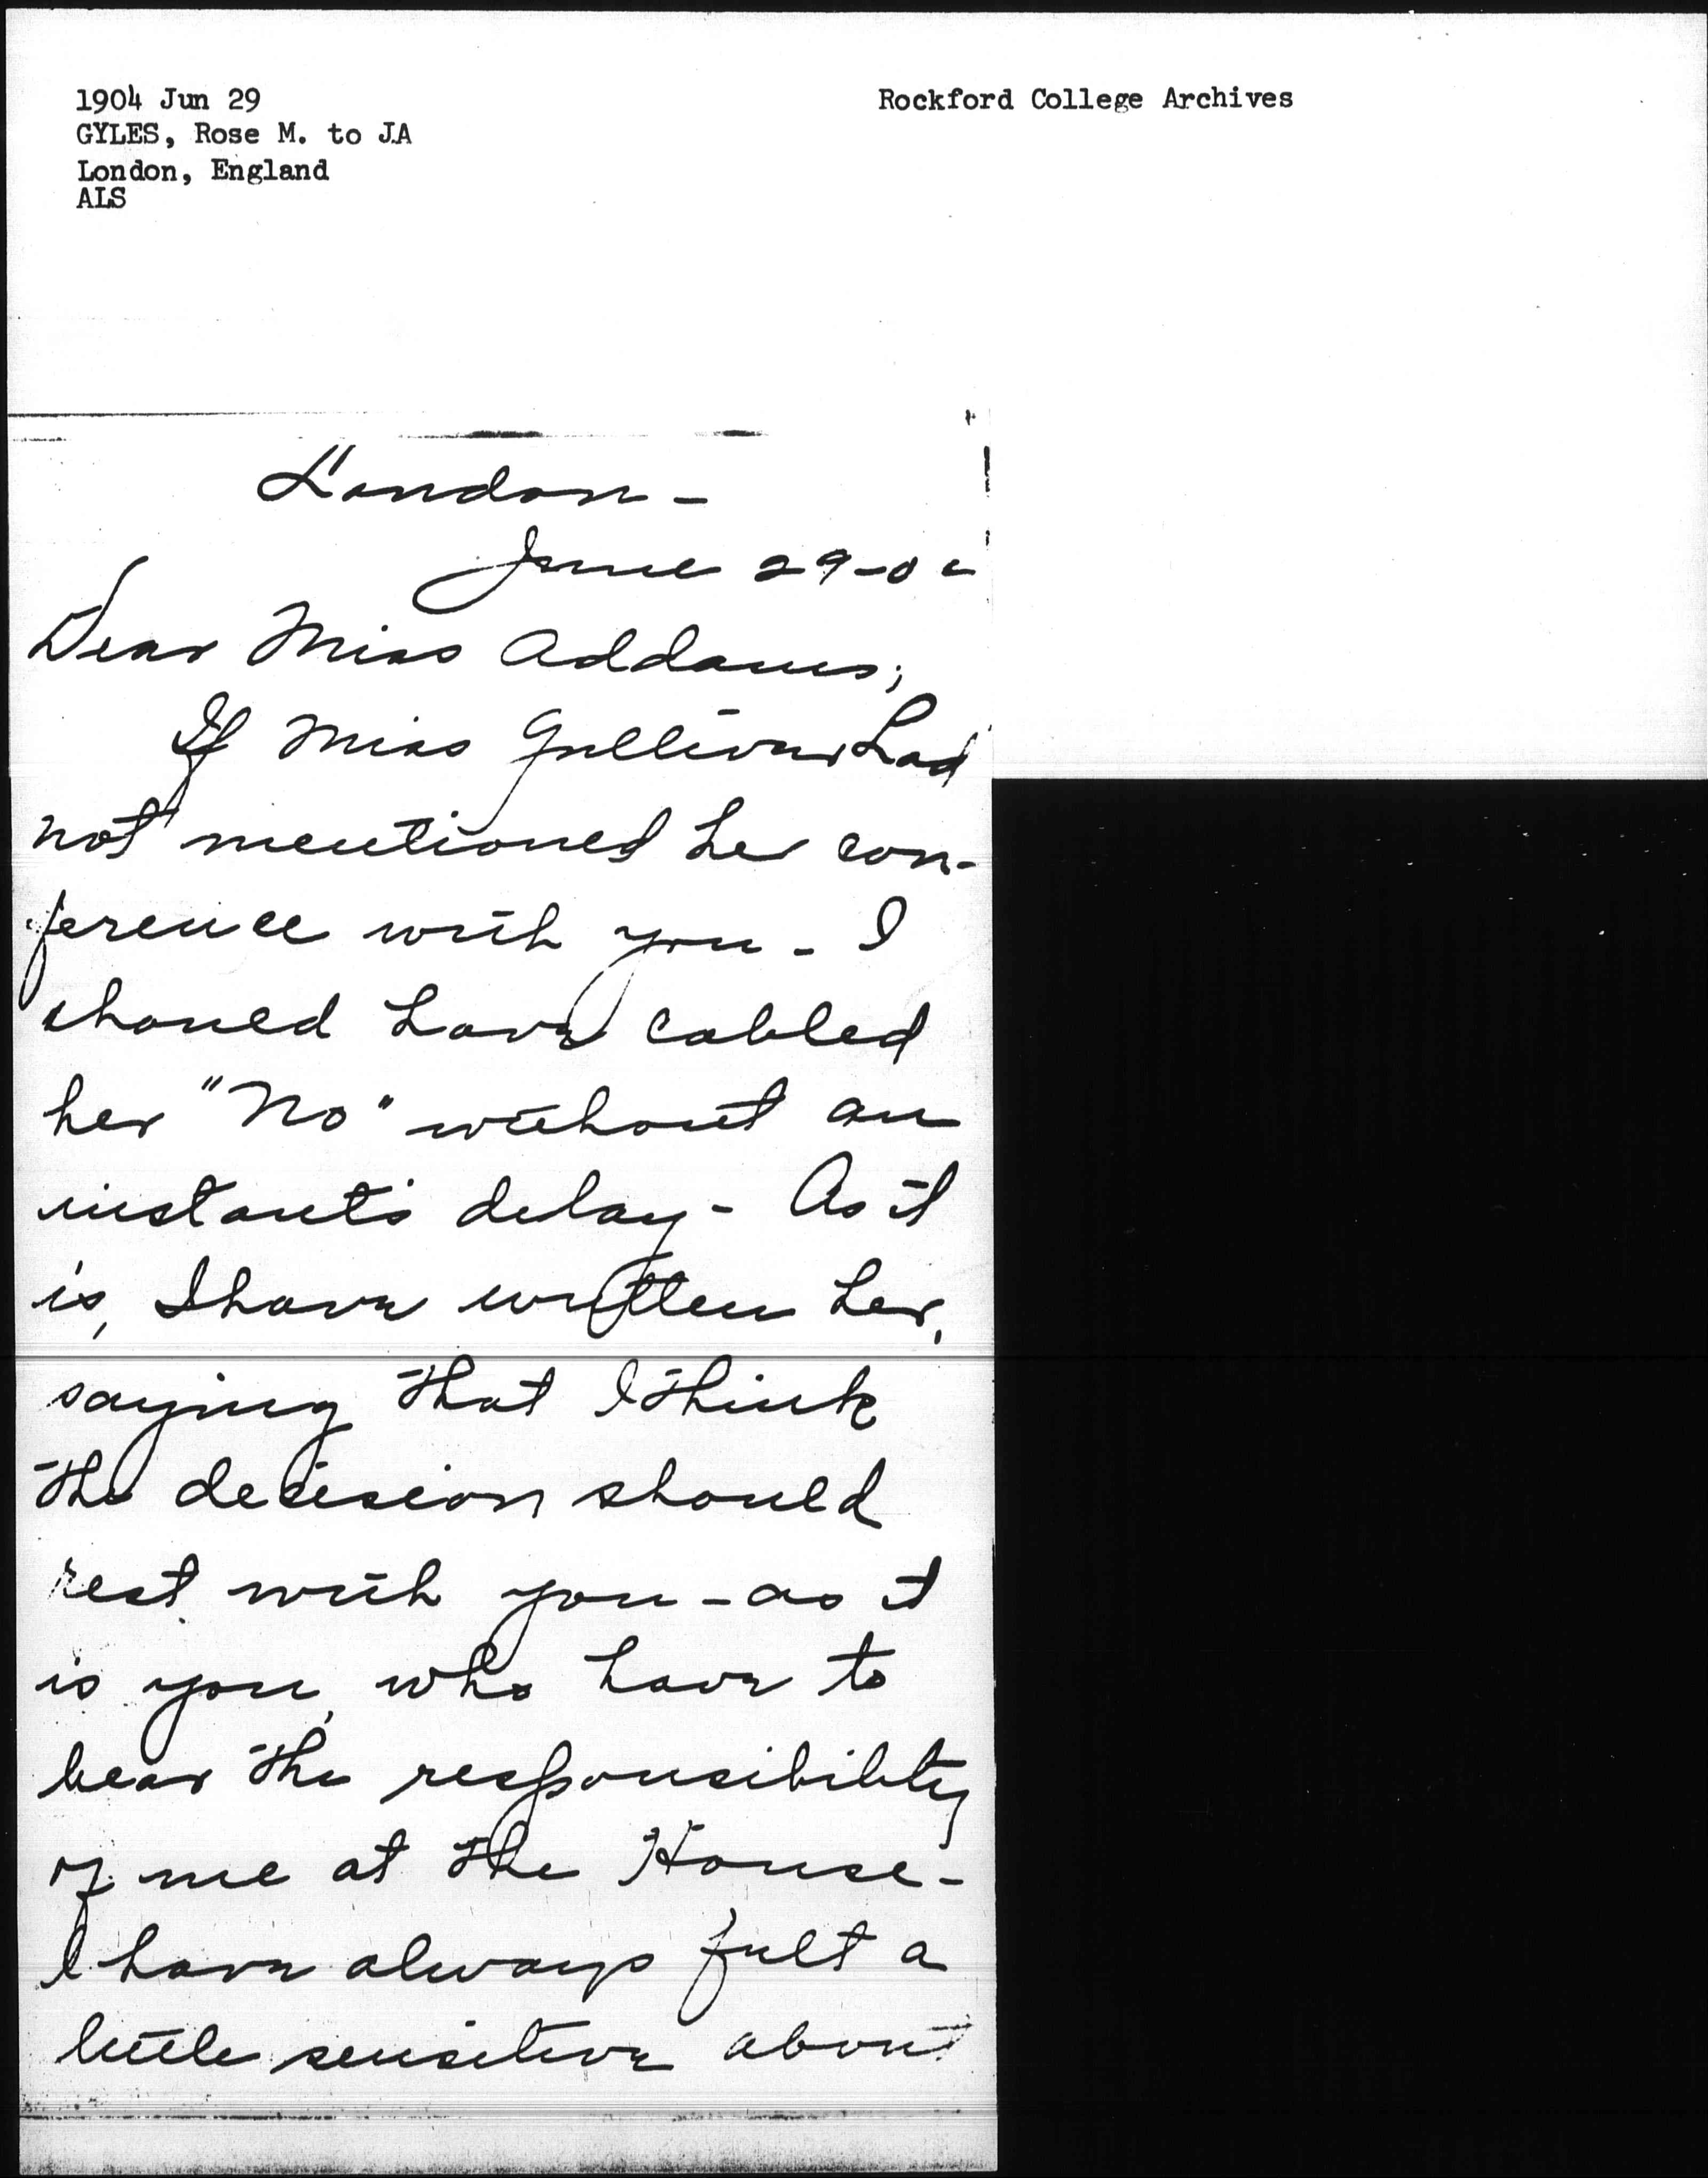 1904 Jun 29
GYLES, Rose M. to JA
London, England
ALS
Rockford College Archives
London -
June 29-0
Dear Miss Addams;
If Miss Gulliver had
not mentioned her con-
ference with you - I
should have cabled
her "No" without an
instant's delay - As it
is, I have written her,
saying that I think
the decision should
rest with you - as it
is you, who have to
bear the responsibility
of me at the House -
I have always felt a
little sensitive about